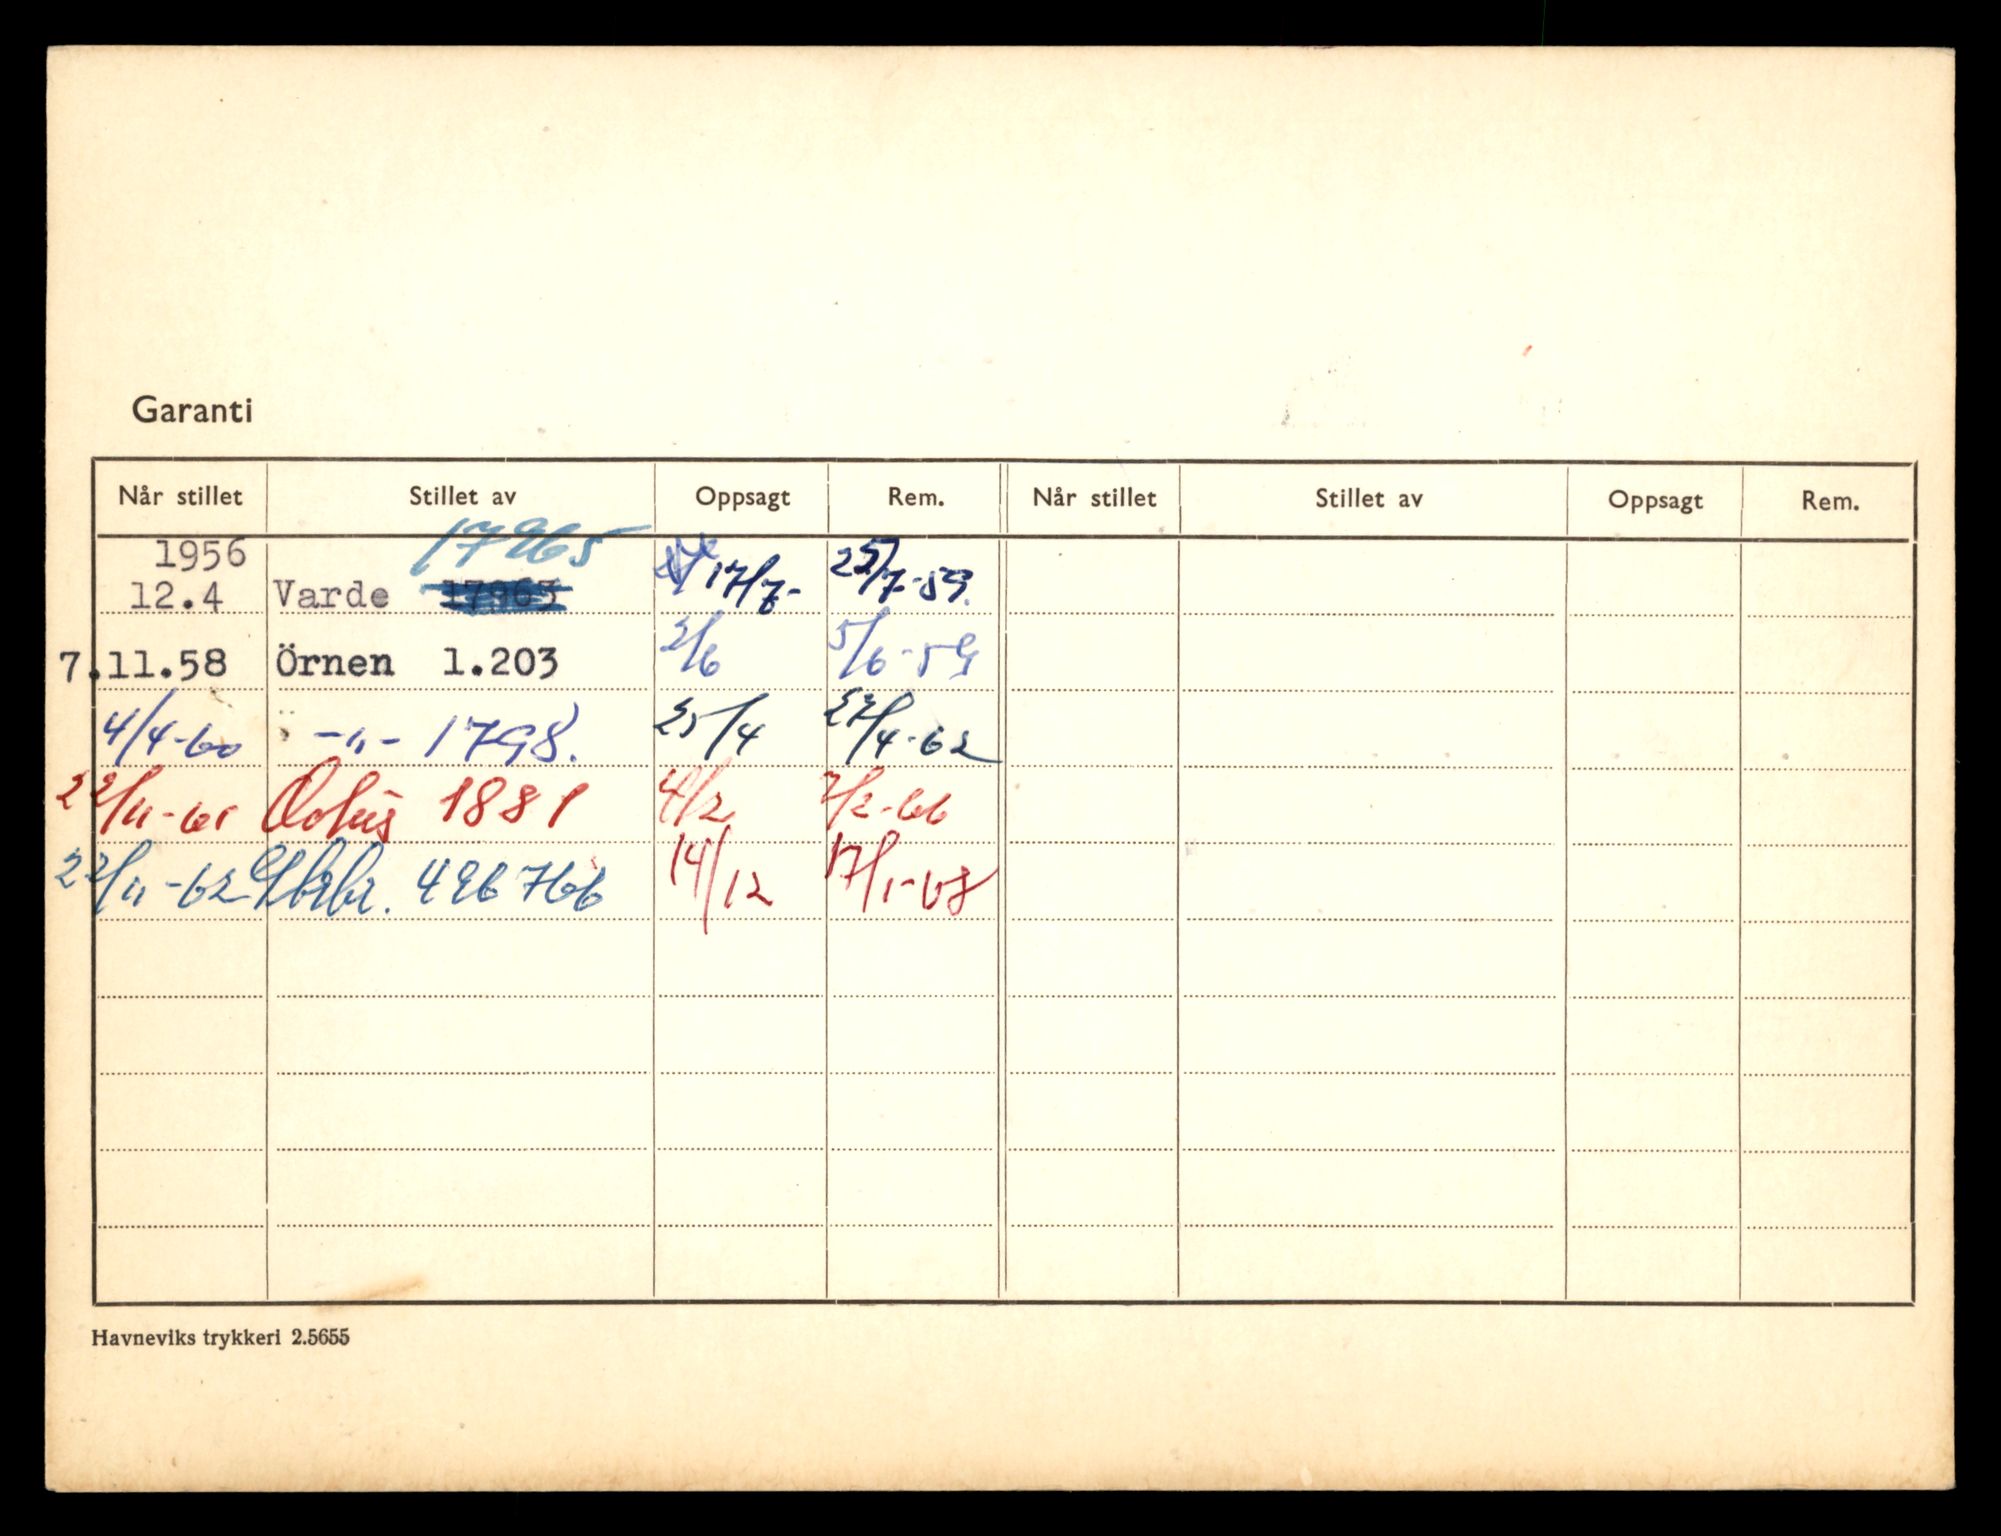 Garanti
Når stillet Stillet av Oppsagt Rem. Når stillet Stillet av Oppsagt Rem.
1956 17965
12.4 Varde 17963 17/7- 25/7-59.
7.11.58 Örnen 1.203 2/6 5/6-59
4/4-60 -"- 1798. 25/4 27/4-62
22/11-61 1881 4/2 7/2-66
22/11-62 496766 14/12 17/1-68
Havneviks trykkeri 2.5655